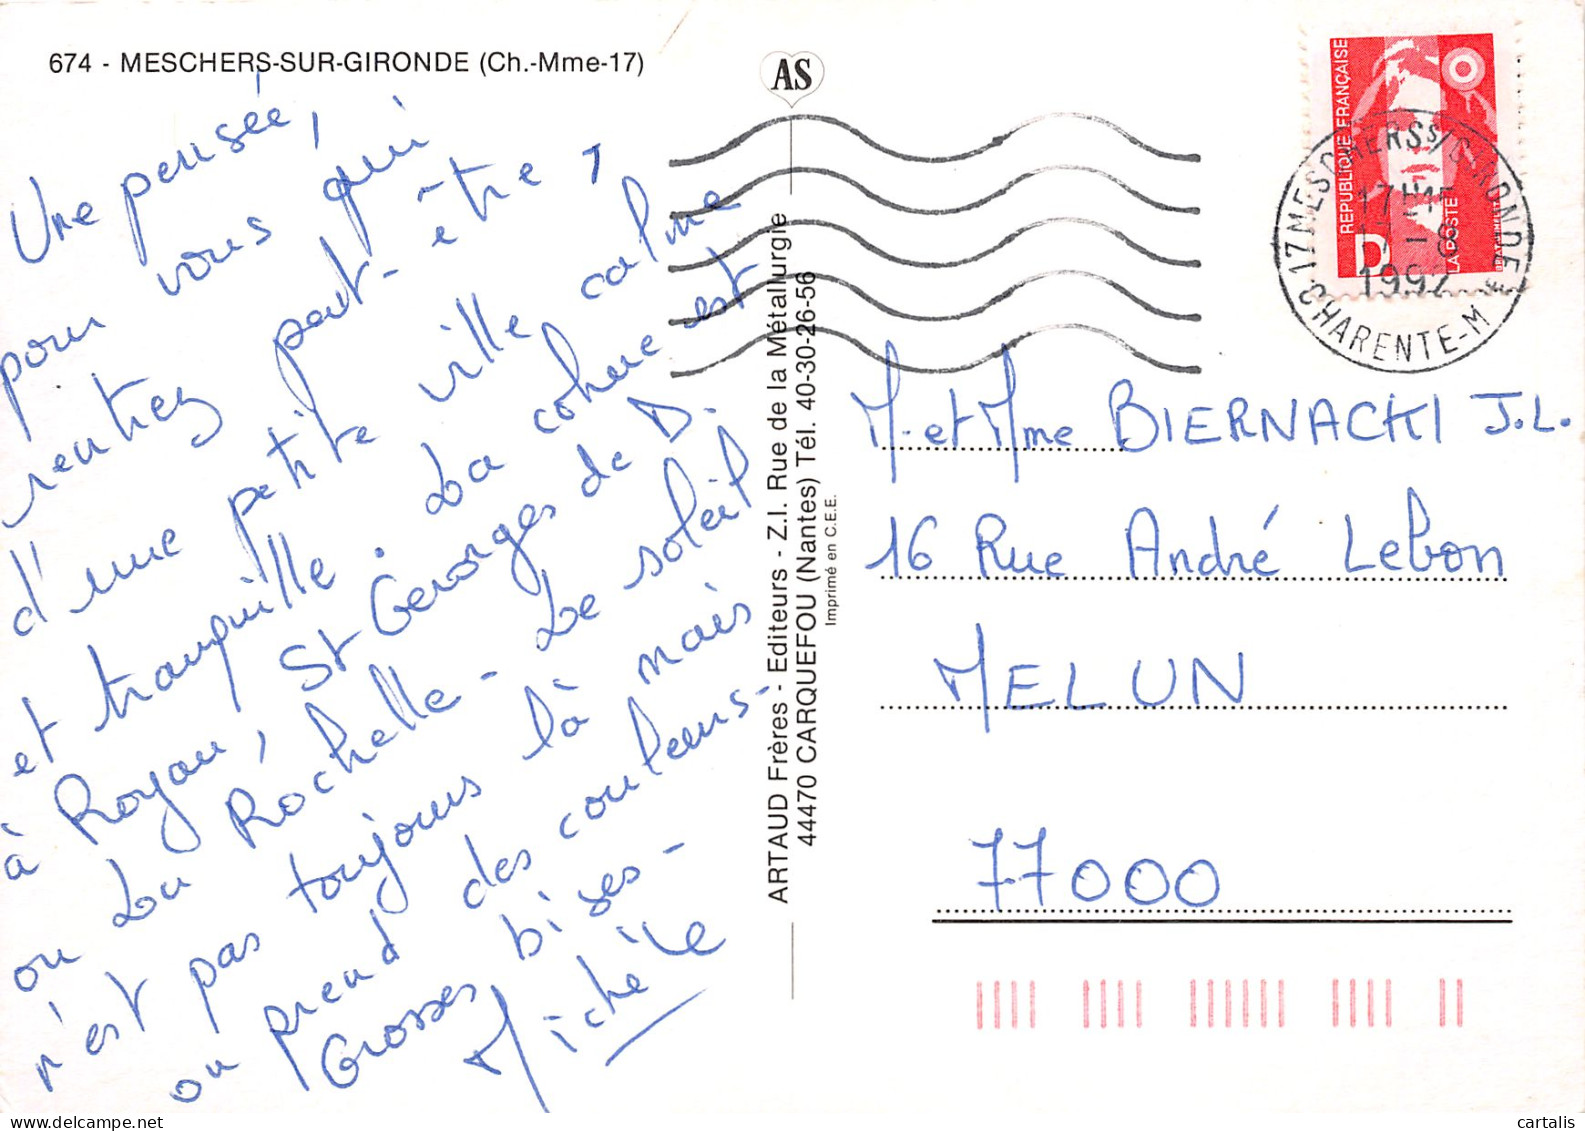 674 - MESCHERS-SUR-GIRONDE (Ch.-Mme-17)
AS
Une pensée,
pour vous qui
rentrez peut-être,
d'une petite ville calme
et tranquille. La cohue est
à Royan, St Georges de D.
ou La Rochelle - Le soleil
n'est pas toujours là mais
on prend des couleurs -
Grosses bises -
Michèle
ARTAUD Frères - Editeurs - Z.I. Rue de la Métallurgie
44470 CARQUEFOU (Nantes) Tél. 40-30-26-56
Imprimé en C.E.E.
REPUBLIQUE FRANÇAISE
D
LA POSTE
17 MESCHERS S/GIRONDE
17H15
-8
1992
CHARENTE-M
M. et Mme BIERNACKI J.L.
16 Rue André Lebon
MELUN
77000
cartalis